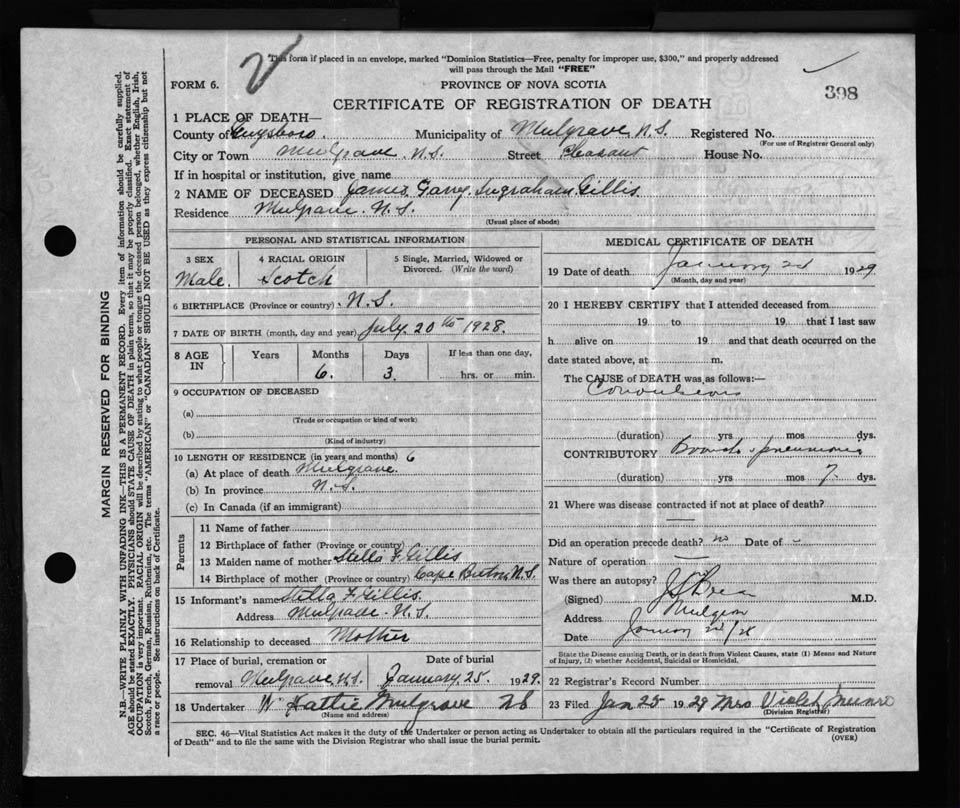 This form if placed in an envelope, marked "Dominion Statistics—Free, penalty for improper use, $300," and properly addressed
will pass through the Mail "FREE"
FORM 6.
PROVINCE OF NOVA SCOTIA
398
CERTIFICATE OF REGISTRATION OF DEATH
1 PLACE OF DEATH—
County of Guysboro. Municipality of Mulgrave, N.S. Registered No.
(For use of Registrar General only)
City or Town Mulgrave. N.S. Street Pleasant House No.
If in hospital or institution, give name
2 NAME OF DECEASED James Garry Ingraham Gillis
Residence Mulgrave. N.S.
(Usual place of abode)
PERSONAL AND STATISTICAL INFORMATION
3 SEX 4 RACIAL ORIGIN 5 Single, Married, Widowed or
Divorced. (Write the word)
Male. Scotch
6 BIRTHPLACE (Province or country) N.S.
7 DATE OF BIRTH (month, day and year) July 20th 1928.
8 AGE IN Years Months Days If less than one day,
6. 3. hrs. or min.
9 OCCUPATION OF DECEASED
(a)
(Trade or occupation or kind of work)
(b)
(Kind of industry)
10 LENGTH OF RESIDENCE (in years and months) 6
(a) At place of death Mulgrave.
(b) In province N.S.
(c) In Canada (if an immigrant)
Parents
11 Name of father
12 Birthplace of father (Province or country)
13 Maiden name of mother Stella F. Gillis
14 Birthplace of mother (Province or country) Cape Breton N.S.
15 Informant's name Stella F. Gillis.
Address Mulgrave. N.S.
16 Relationship to deceased Mother
17 Place of burial, cremation or Date of burial
removal Mulgrave, N.S. January 25. 1929.
18 Undertaker W. Hattie Mulgrave NS
(Name and address)
MEDICAL CERTIFICATE OF DEATH
19 Date of death January 1929
(Month, day and year)
20 I HEREBY CERTIFY that I attended deceased from
19 to 19 that I last saw
h alive on 19 and that death occurred on the
date stated above, at m.
The CAUSE of DEATH was as follows:—
Convulsions
(duration) yrs mos dys.
CONTRIBUTORY Broncho pneumonia
(duration) yrs mos 7. dys.
21 Where was disease contracted if not at place of death?
—
Did an operation precede death? no Date of -
Nature of operation —
Was there an autopsy?
(Signed) M.D.
Address
Date
State the Disease causing Death, or in death from Violent Causes, state (1) Means and Nature
of Injury, (2) whether Accidental, Suicidal or Homicidal.
22 Registrar's Record Number
23 Filed Jan 25 1929 Mrs Violet Munro
(Division Registrar)
SEC. 46—Vital Statistics Act makes it the duty of the Undertaker or person acting as Undertaker to obtain all the particulars required in the "Certificate of Registration
of Death" and to file the same with the Division Registrar who shall issue the burial permit.
(OVER)
MARGIN RESERVED FOR BINDING
N.B.—WRITE PLAINLY WITH UNFADING INK—THIS IS A PERMANENT RECORD. Every item of information should be carefully supplied.
AGE should be stated EXACTLY. PHYSICIANS should STATE CAUSE OF DEATH in plain terms, so that it may be properly classified. Exact statement of
OCCUPATION is very important. RACIAL ORIGIN will be described by stating to what people or tongue the deceased person belonged, whether English, Irish,
Scotch, French, German, Russian, Ruthenian, etc. The terms "AMERICAN" or "CANADIAN" SHOULD NOT BE USED as they express citizenship but not
a race or people. See instructions on back of Certificate.